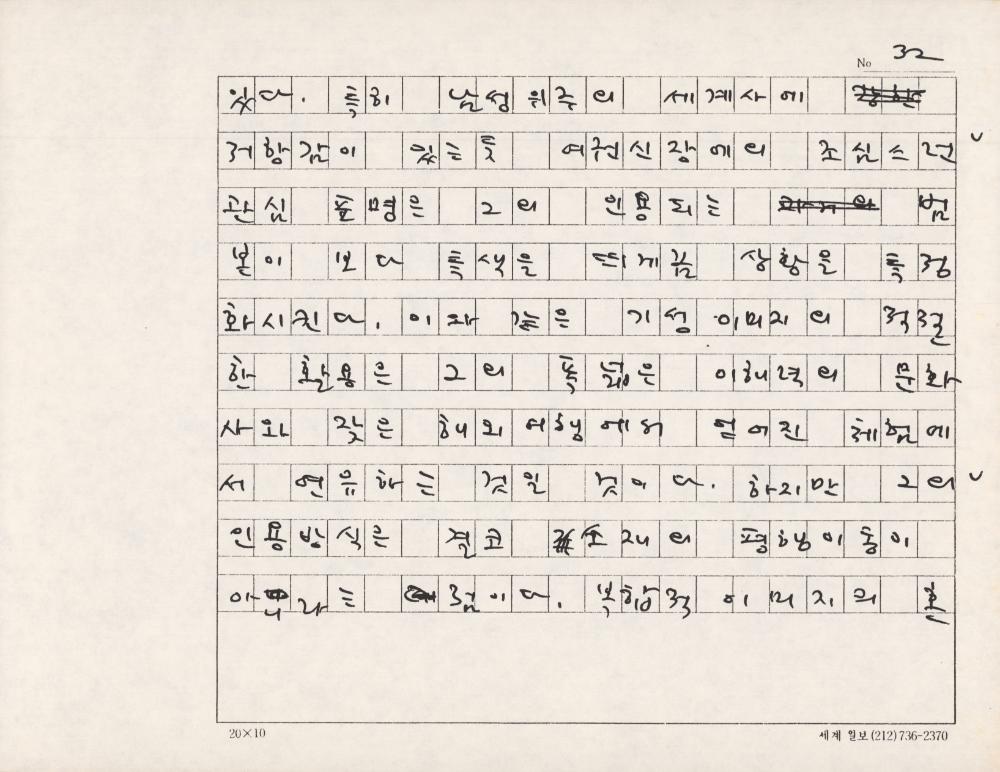 No 32
있다. 특히 남성 위주의 세계사에
저항감이 있는 듯 여권신장에의 조심스런
관심 표명은 그의 인용되는 범
본이 보다 특색을 띄게끔 상황을 특정
화시킨다. 이와 같은 기성 이미지의 적절
한 활용은 그의 폭 넓은 이해력의 문화
사와 잦은 해외여행에서 얻어진 체험에
서 연유하는 것일 것이다. 하지만 그의
인용방식은 결코 소재의 평행이동이
아니라는 점이다. 복합적 이미지의 혼
20×10
세계일보 (212) 736-2370